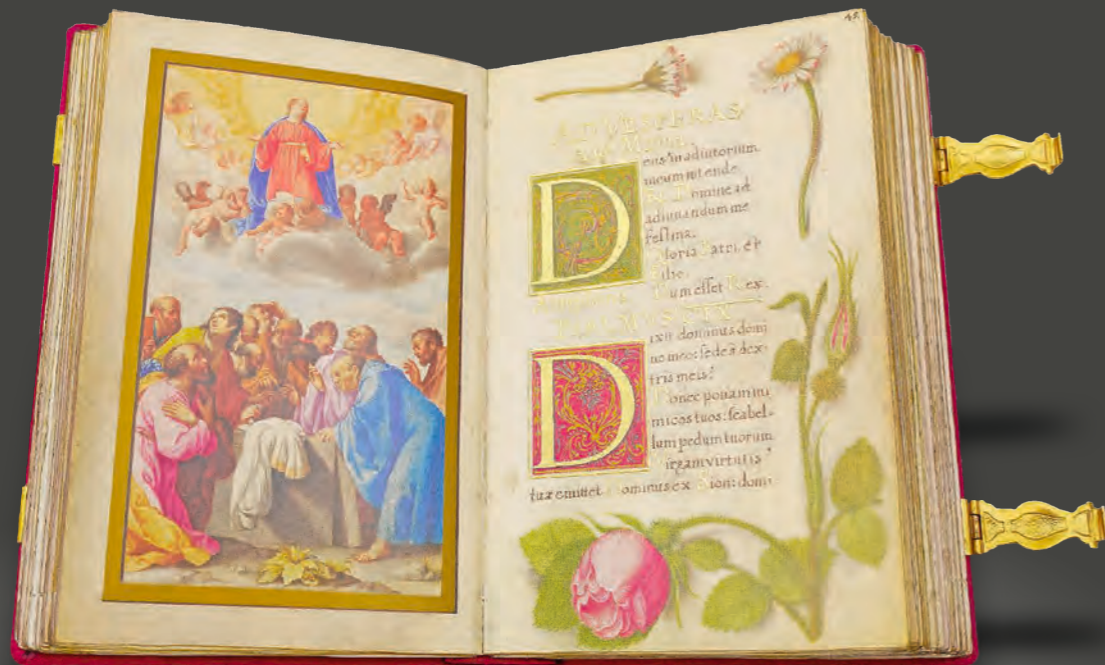 45
AD VESPERAS
D eus in adiutorium
meum intende
Domine ad
adiuuandum me
festina.
Gloria Patri, et
Filio.
Dum esset Rex.
D ixit dominus domi
no meo: sede a dex-
tris meis.
Donec ponam ini
micos tuos: scabel-
lum pedum tuorum
irgam virtutis
tuæ emittet Dominus ex Sion: domi